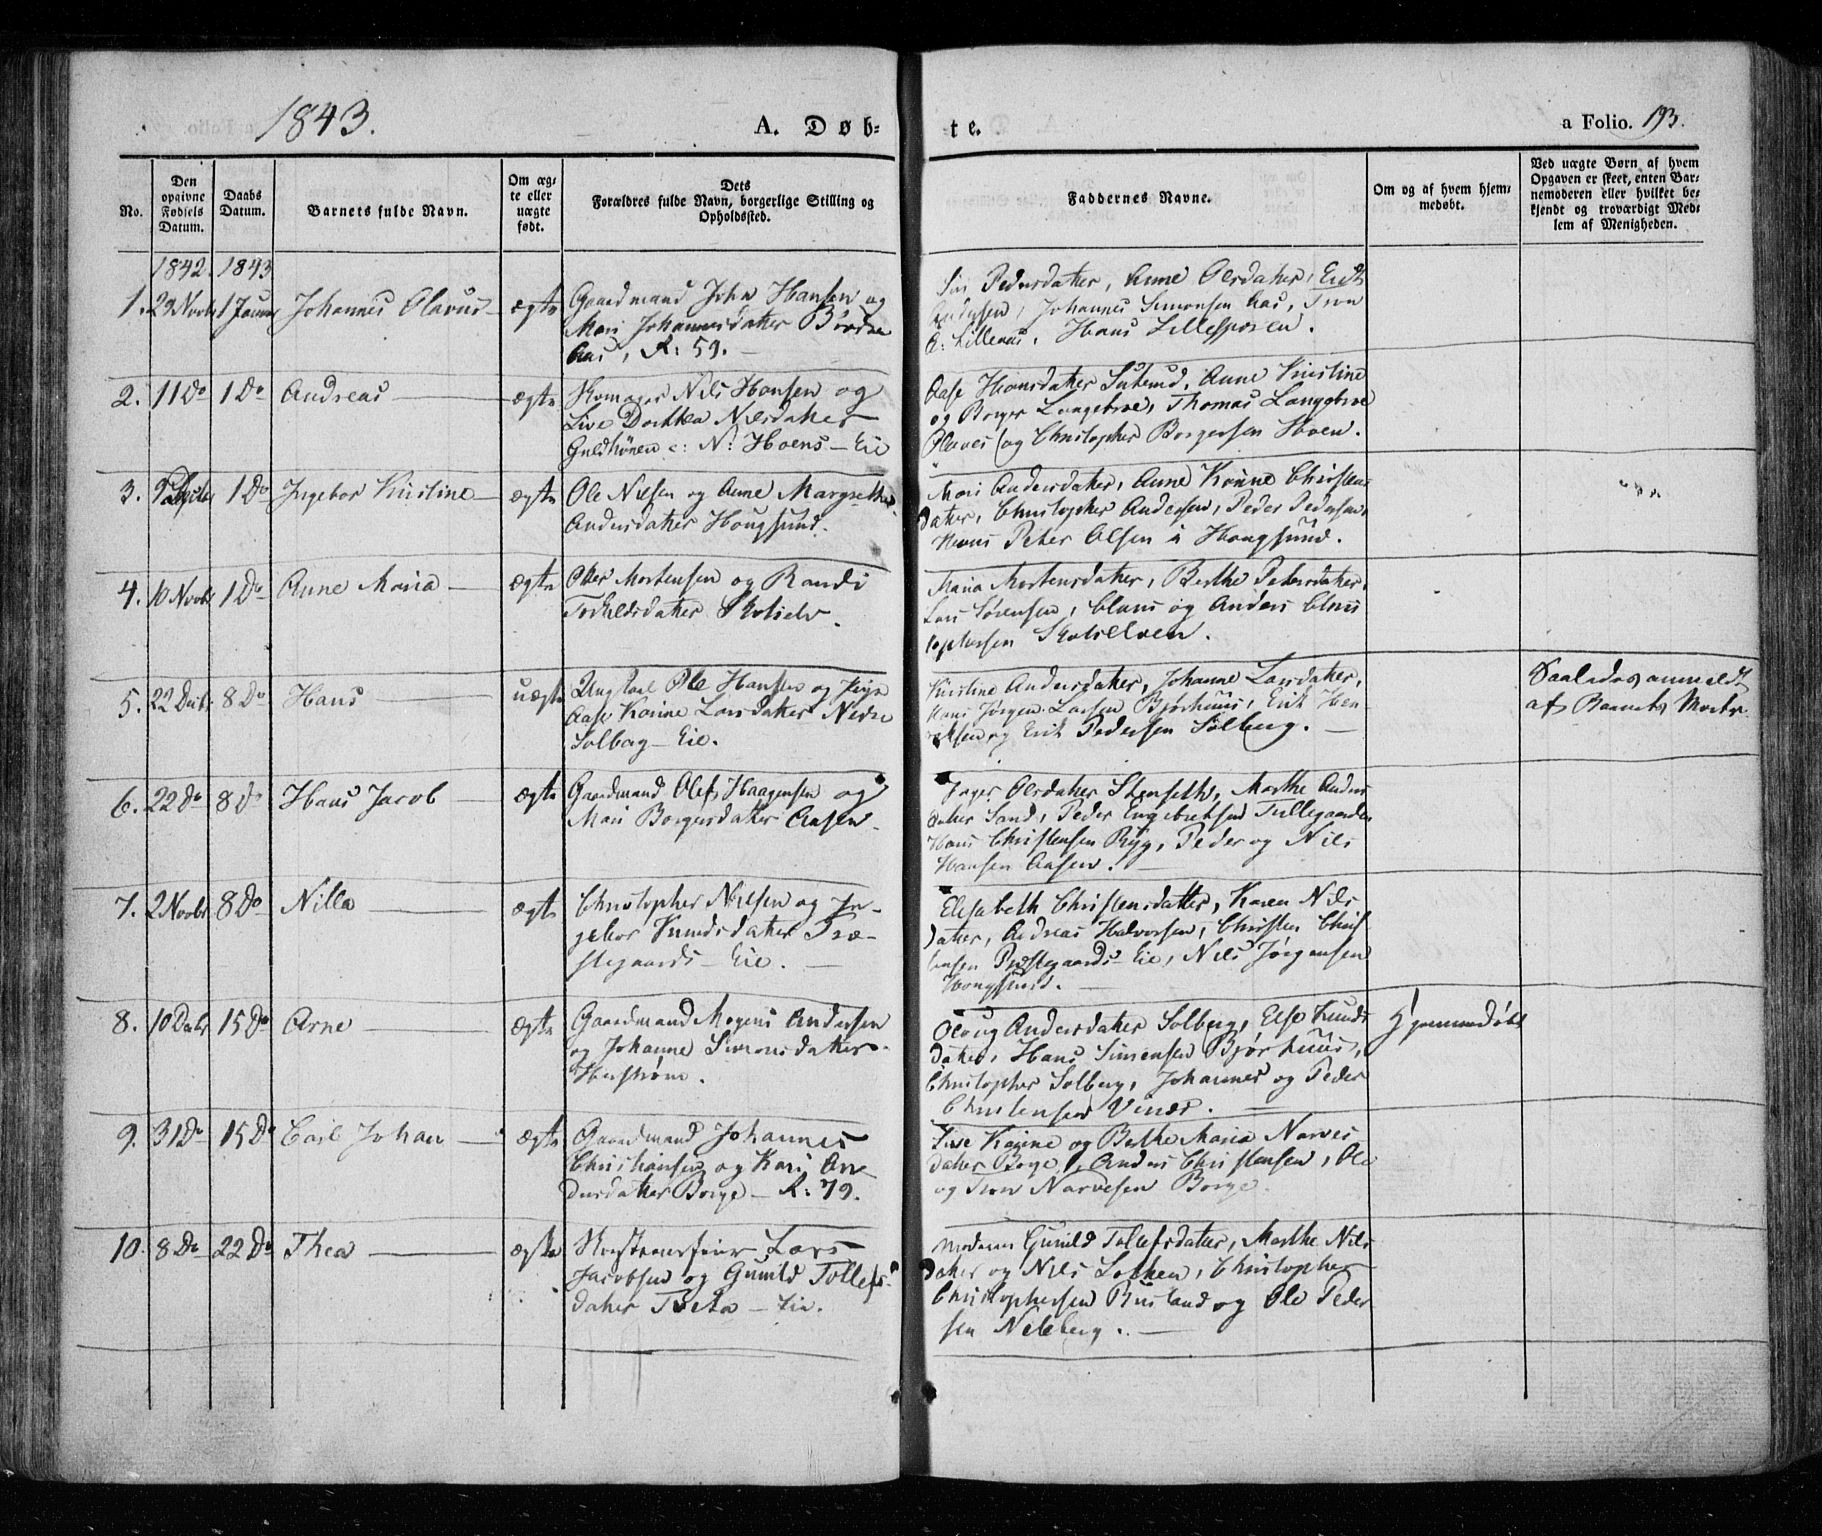 1843.
A. Døb-
te.
a Folio. 193.
No.
Den
opgivne
Fødsels
Datum.
Daabs
Datum.
Barnets fulde Navn.
Om æg-
te eller
uægte
født.
Dets
Forældres fulde Navn, borgerlige Stilling og
Opholdssted.
Faddernes Navne.
Om og af hvem hjem-
medøbt.
Ved uægte Børn af hvem
Opgaven er skeet, enten Bar-
nemoderen eller hvilket be-
kjendt og troværdigt Med-
lem af Menigheden.
1842. 1843
1. 29 Novbr 1 Januar Johannes Olavus ægte
Gaardmand John Hansen og
Mari Johannesdatter
Aas, R: 59.
Pedersdatter, Anne Olsdatter, Erik
Andersen, Johannes Simonsen Aas, Tron
Lillenæs, Hans
2. 11 Do 1 Do Andreas ægte
Skomager Nils Hansen og
Live Dorthea Nilsdatter
N: Hoens-Eie
Aase Hansdatter, Anne Kristine
og Borger Langebroe, Thomas Langebroe
og Christopher Borgersen Hoen.
3. 1 Do Ingebor Kristine ægte
Ole Nilsen og Anne Margrethe
Andersdatter Hougsund.
Mari Andersdatter, Anne Christens
datter, Christopher Andersen, Peder Pedersen,
Peter Olsen i Hougsund.
4. 10 Novbr 1 Do Anne Maria ægte
Otter Mortensen og Randi
Torkildsdatter Skotselv.
Maria Mortensdatter, Berthe Petersdatter,
Lars Sørensen, Claus og Anders Chris
tophersen Skotselven.
5. 22 Decbr 8 Do Hans uægte
Ungkarl Ole Hansen og Pige
Aase Karine Larsdatter Nedre
Solberg-Eie.
Kristine Andersdatter, Johanne Larsdatter,
Hans Jørgen Larsen Bjørhuus, Erik Hen
riksen og Erik Pedersen Solberg.
Saaledes anmeldt
af Barnets Moder.
6. 22 Do 8 Do Hans Jacob ægte
Gaardmand Olef Haagensen og
Mari Borgersdatter Aasen.
Inger Olsdatter Stenseth, Marthe Anders
datter Sand, Peder Engebretsen Tullegaarden
Hans Christensen Ryg, Peder og Nils
Hansen Aasen.
7. 2 Novbr 8 Do Nilla ægte
Christopher Nilsen og In-
gebor Knudsdatter Præ-
stegaards-Eie.
Elisabeth Christensdatter, Karen Nils
datter, Andreas Halvorsen, Christen Chris
tensen Præstegaards-Eie, Nils Jørgensen
Hougsund.
8. 10 Decbr 15 Do Arne ægte
Gaardmand Mogens Andersen
og Johanne Simonsdatter
Andersdatter Solberg, Else Knuds
datter, Hans Simensen Bjørhuus,
Christopher Solberg, Johannes og Peder
Christensen
Hjemmedøbt
9. 31 Do 15 Do Carl Johan ægte
Gaardmand Johannes
Christiansen og Kari An
dersdatter Borge - R: 79.
Live Karine og Berthe Maria Narves
datter Borge, Anders Christensen, Ole
og Tron Narvesen Borge.
10. 8 Do 22 Do Thea ægte
Lars
Jacobsen og Gunild Tollefs
datter - Eie.
Moderen Gunild Tollefsdatter, Marthe Nils
datter og Nils Lokken, Christopher
Christophersen Rustand og Ole Peder
sen